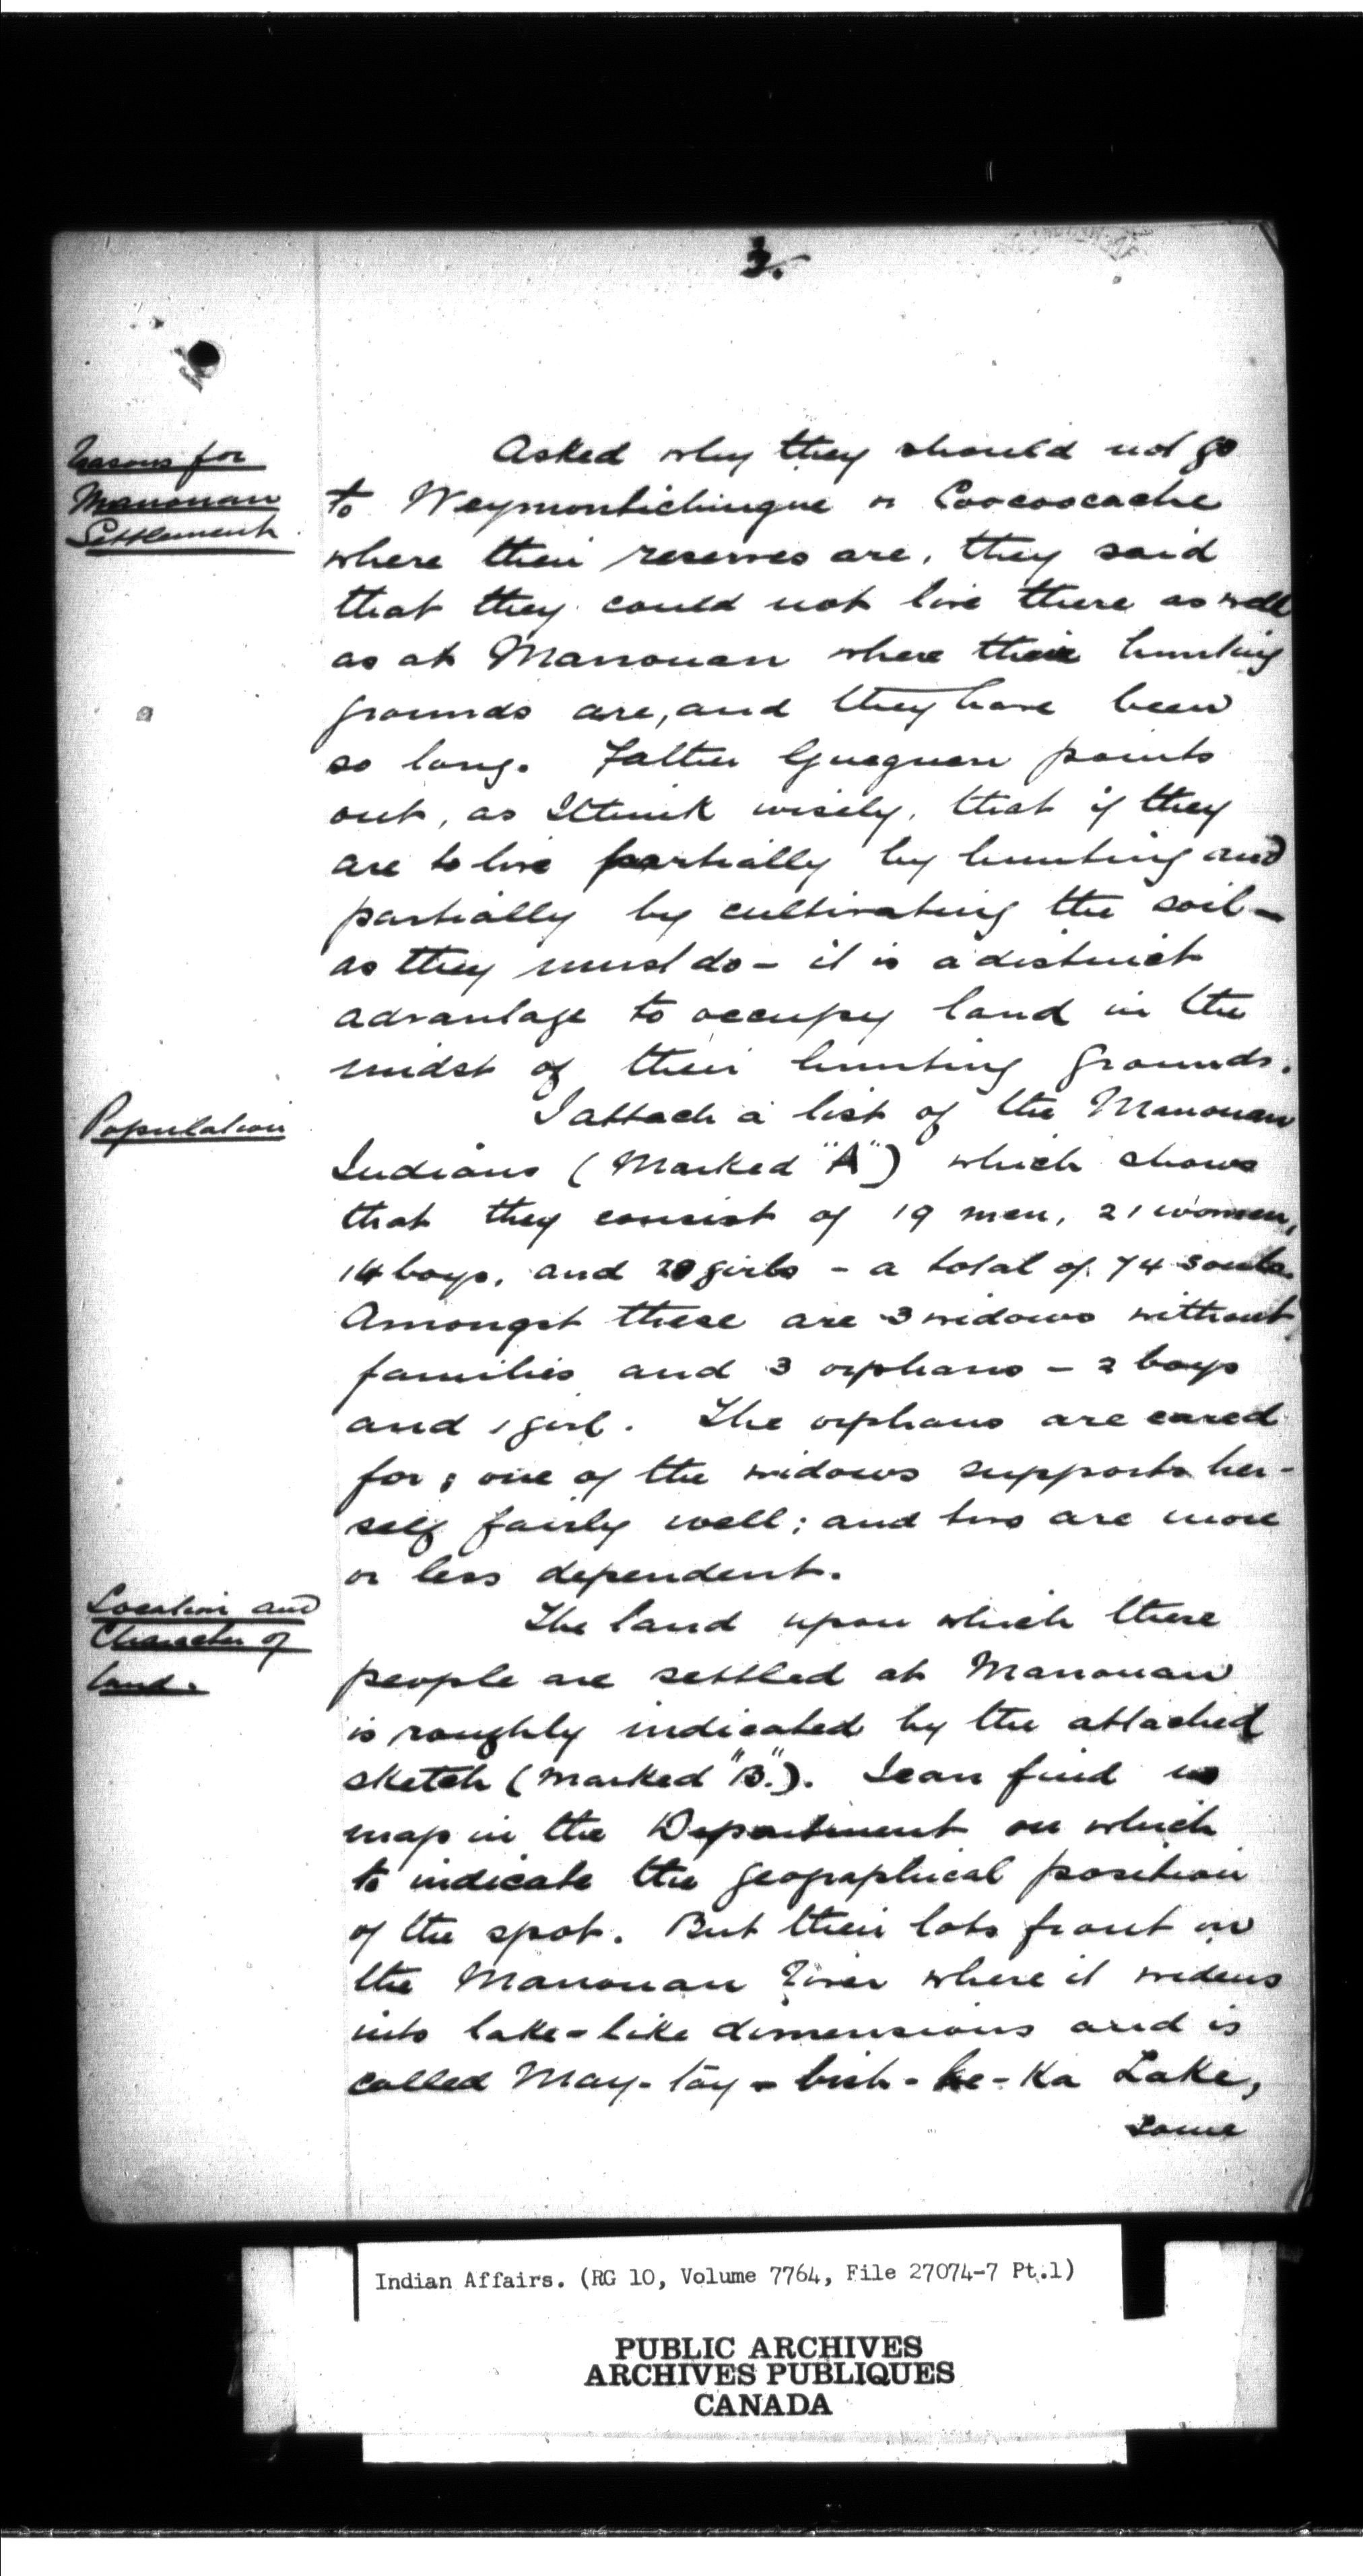 3.
Reasons for
Manouan
Settlement.
Asked why they should not go
to Weymontichingue or Coocoocache
where their reserves are, they said
that they could not live there as well
as at Manouan where their hunting
grounds are, and they have been
so long. Father Gueguen points
out, as I think wisely, that if they
are to live partially by hunting and
partially by cultivating the soil –
as they must do – it is a distinct
advantage to occupy land in the
midst of their hunting grounds.
Population
I attach a list of the Manouan
Indians (Marked "A") which shows
that they consist of 19 men, 21 women,
14 boys, and 20 girls – a total of 74 souls.
Amongst these are 3 widows without
families and 3 orphans – 2 boys
and 1 girl. The orphans are cared
for; one of the widows supports her-
self fairly well; and two are more
or less dependent.
Location and
Character of
land.
The land upon which these
people are settled at Manouan
is roughly indicated by the attached
sketch (Marked "B".). I can find no
map in the Department on which
to indicate the geographical position
of the spot. But their lots front on
the Manouan River where it widens
into lake-like dimensions and is
called May-tay-bish-ke-ka Lake,
some
Indian Affairs. (RG 10, Volume 7764, File 27074-7 Pt.1)
PUBLIC ARCHIVES
ARCHIVES PUBLIQUES
CANADA